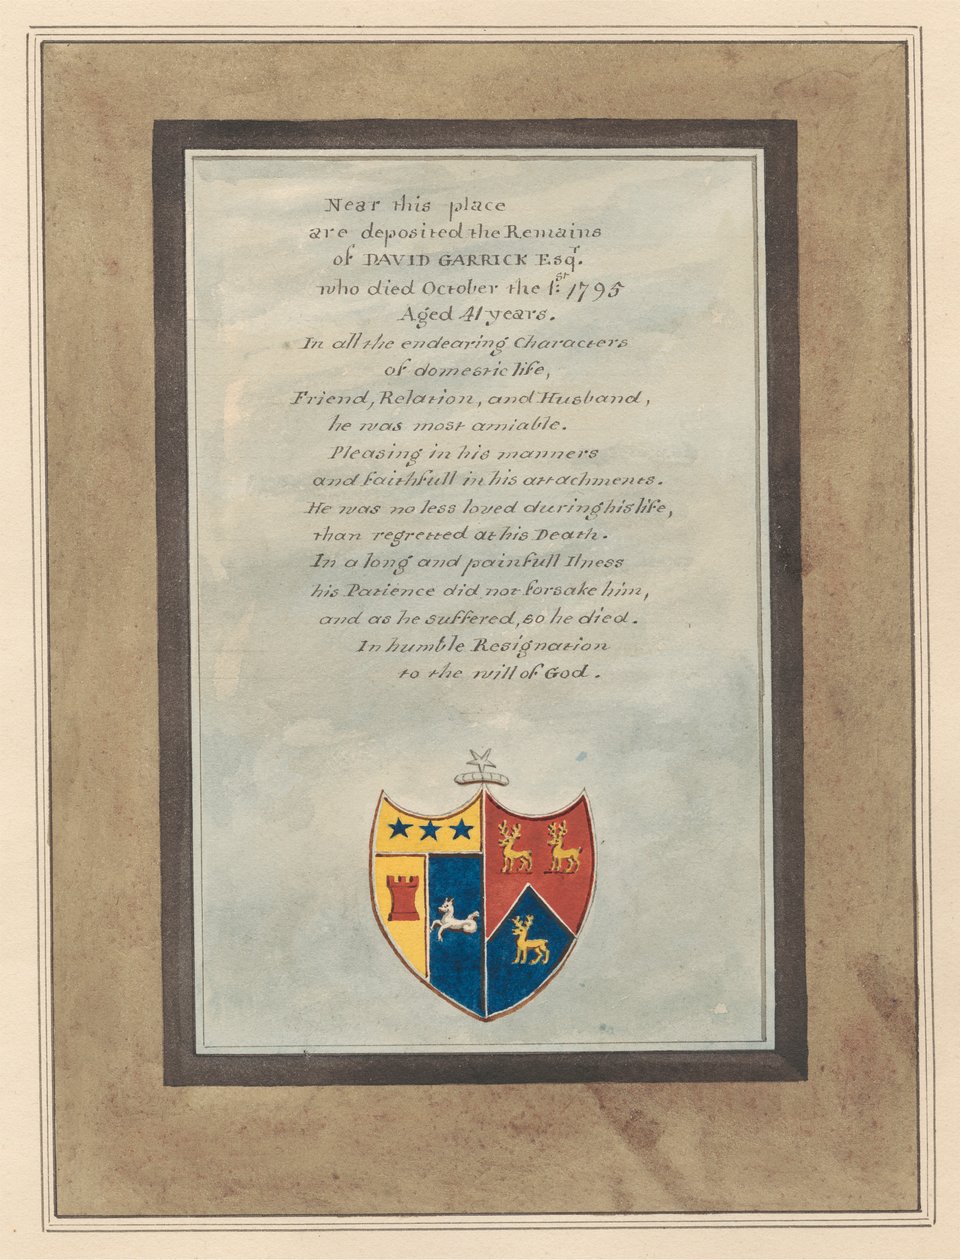 Near this place
are deposited the Remains
of DAVID GARRICK Esqr.
who died October the 1st: 1795
Aged 41 years.
In all the endearing Characters
of domestic life,
Friend, Relation, and Husband,
he was most amiable.
Pleasing in his manners
and faithfull in his attachments.
He was no less loved during his life,
than regretted at his Death.
In a long and painfull Ilness
his Patience did not forsake him,
and as he suffered, so he died.
In humble Resignation
to the will of God.